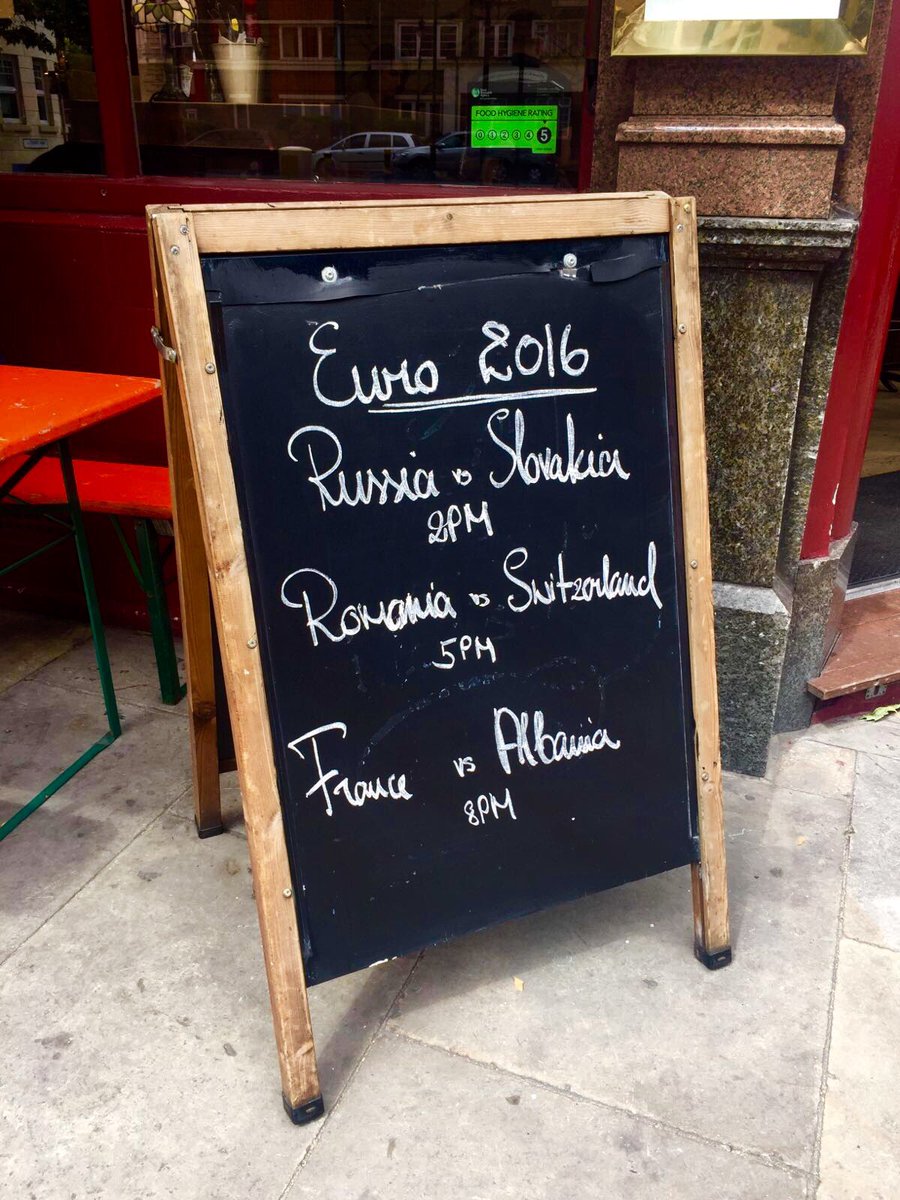 FOOD HYGIENE RATING
0 1 2 3 4 5
Euro 2016
Russia vs Slovakia
2PM
Romania vs Switzorland
5PM
France vs Albania
8PM